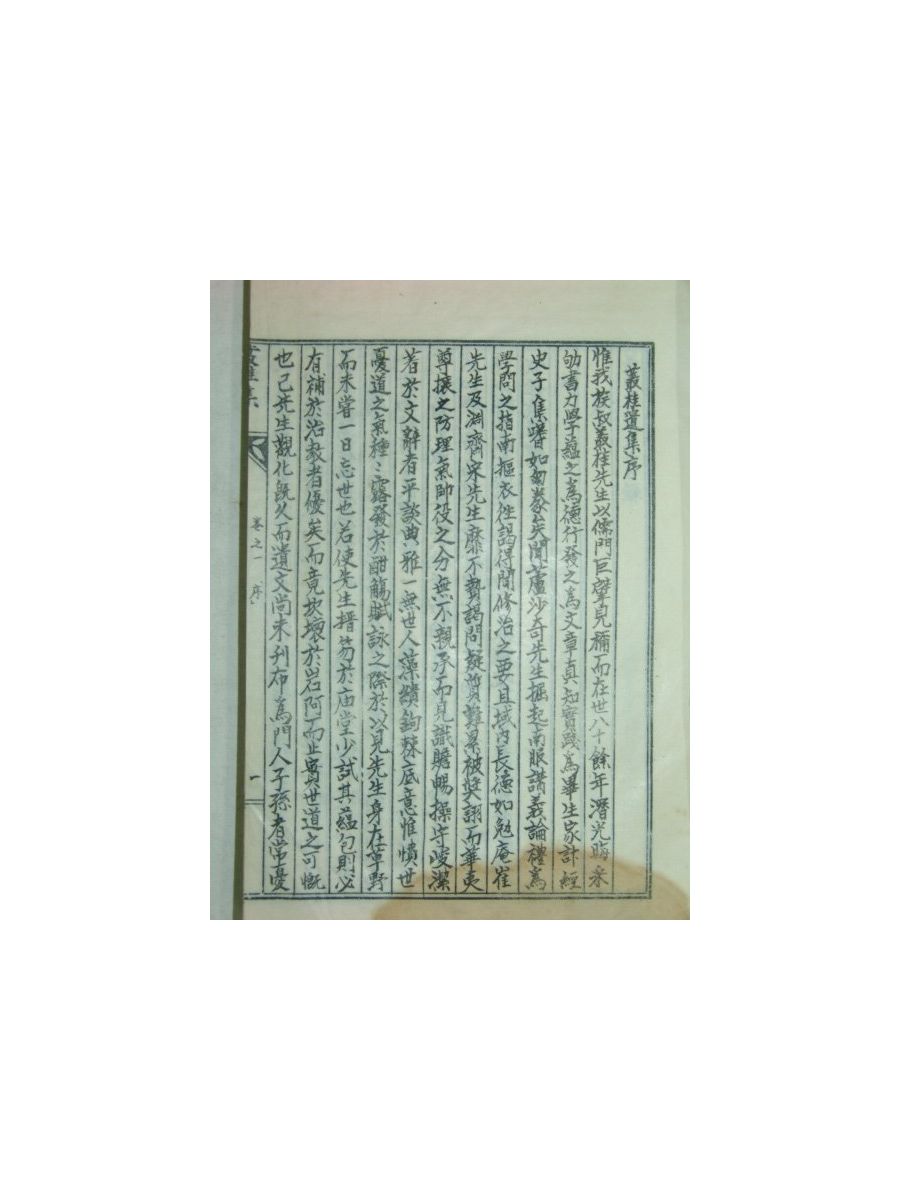 叢桂遺集序
惟我族叔叢桂先生以儒門巨擘兒稱而在世八十餘年潛光晦采
劬書力學蘊之為德行發之為文章真知實踐為畢生家計經
史子集嗜如芻豢矣聞蘆沙奇先生掘起南服講義論禮為
學問之指南摳衣徃謁得聞修治之要且域內長德如勉庵崔
先生及淵齊宋先生靡不贄謁問疑質難累被奬詡而華夷
尊攘之防理氣帥役之分無不親承而見識贍暢操守峻潔
著於文辭者平談典雅一無世人藻繢鉤棘底意惟憤世
憂道之氣種〻露發於酣觴賦詠之際於以見先生身在草野
而未嘗一日忘世也若使先生搢笏於庙堂少試其蘊包則必
有補於治教者優矣而竟坎壈於岩阿而止實世道之可慨
也已先生觀化旣久而遺文尚未刋布為門人子孫者常憂
卷之一 序
一